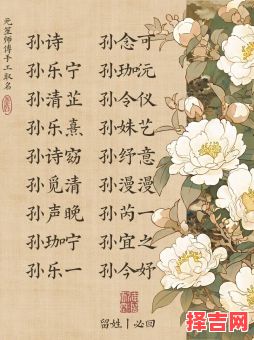 元笙师傅手工取名
孙诗 孙念可
孙乐宁 孙珈沅
孙清芷 孙令仪
孙乐熹 孙姝艺
孙诗窈 孙纾意
孙觅清 孙漫漫
孙声晚 孙芮一
孙珈宁 孙宜之
孙乐一 孙令妤
留姓|必回
择吉网